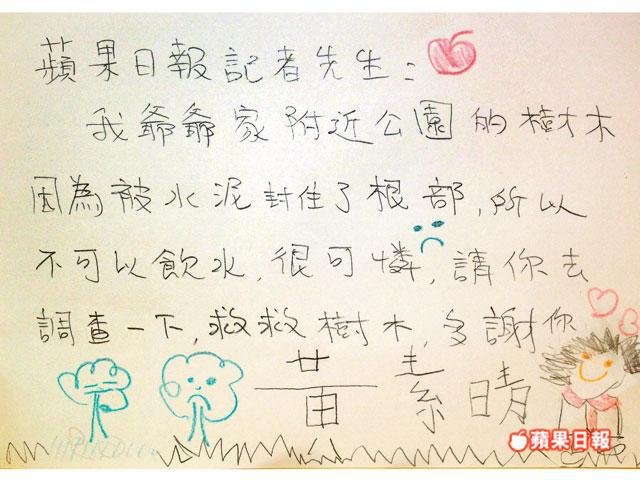 蘋果日報記者先生:
我爺爺家附近公園的樹木
因為被水泥封住了根部,所以
不可以飲水,很可憐,請你去
調查一下,救救樹木,多謝你
黃素晴
蘋果日報